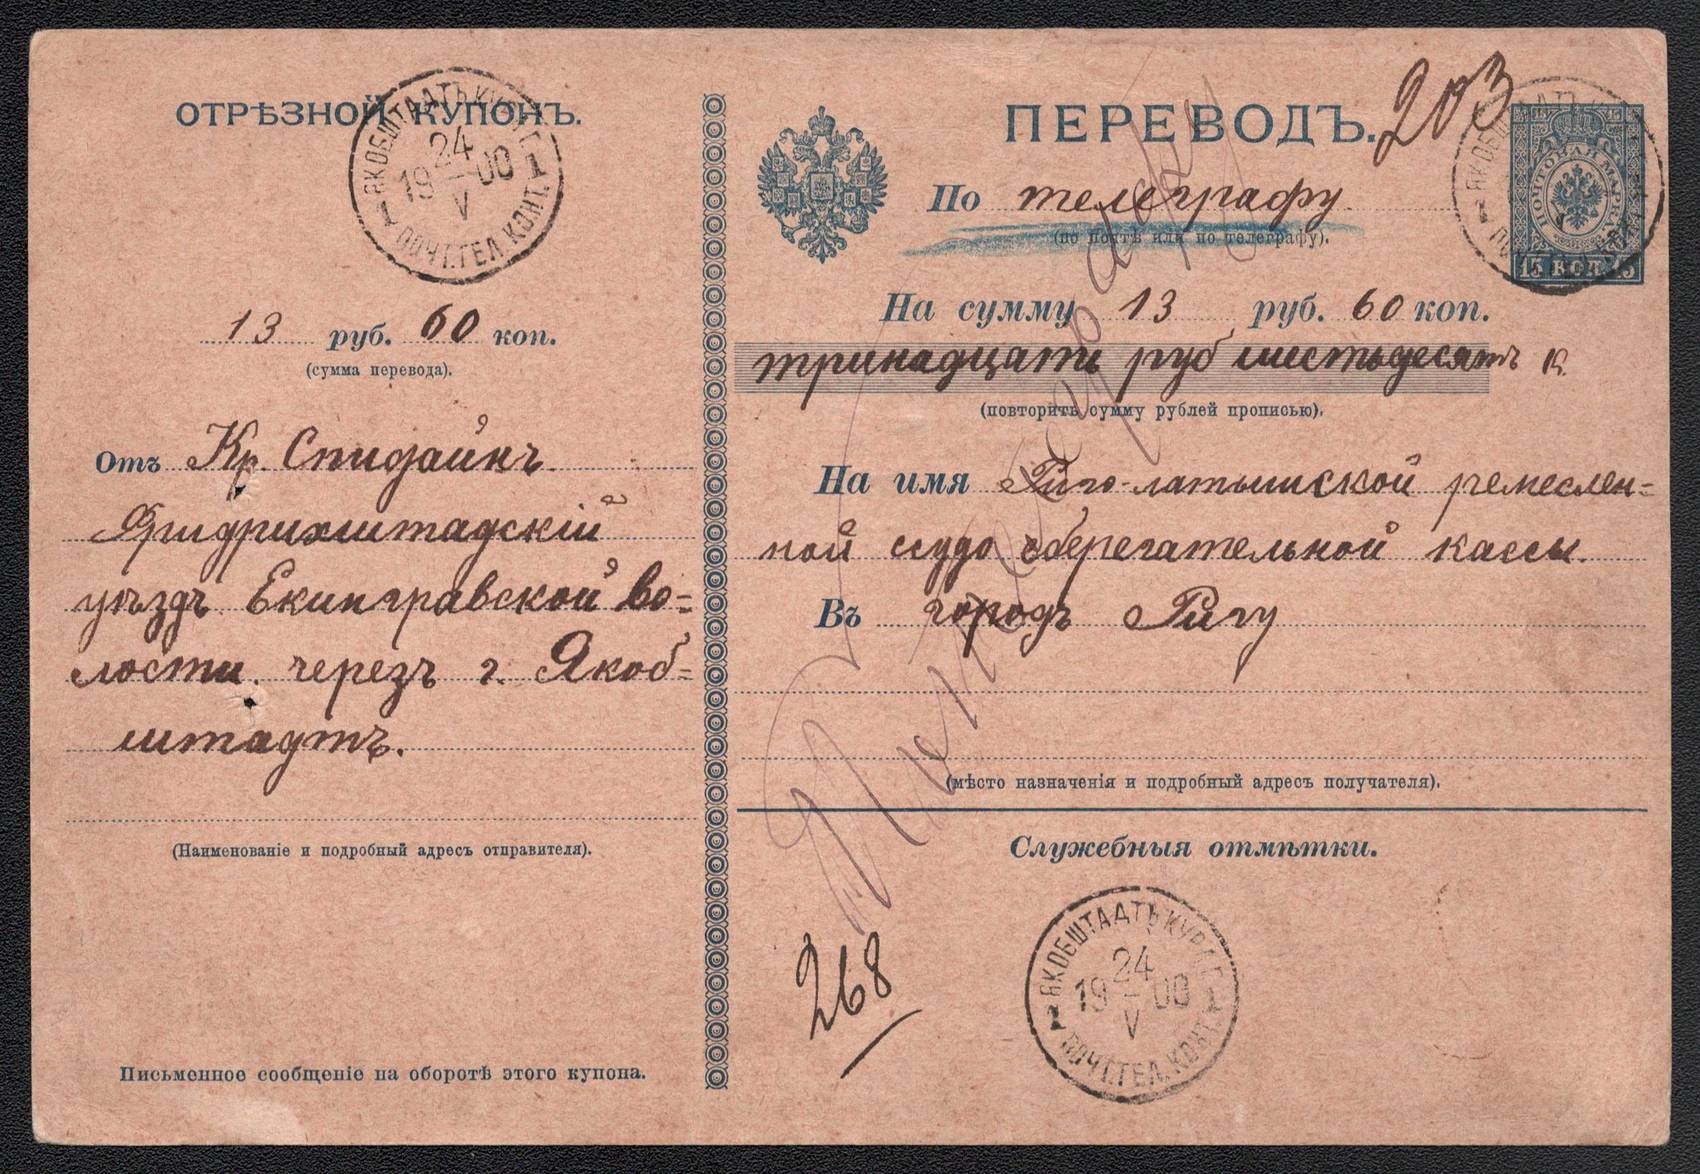 ОТРѢЗНОЙ КУПОНЪ.
ЯКОБШТАДТЪ КУРЛ. Г.
24
19 00
V
1 1
ПОЧТ. ТЕЛ. КОНТ.
13 руб. 60 коп.
(сумма перевода).
Отъ Кр. Спидайнъ
Фридрихштадскій
уѣздъ Екингравской во-
лости. черезъ г. Якоб-
штадтъ.
(Наименованіе и подробный адресъ отправителя).
Письменное сообщеніе на оборотѣ этого купона.
ПЕРЕВОДЪ.
203
ПОЧТОВАЯ МАРКА
15 КОП. 15
По телеграфу
(по почтѣ или по телеграфу).
На сумму 13 руб. 60 коп.
тринадцать руб шестьдесятъ к.
(повторить сумму рублей прописью).
На имя Риго-латышской ремеслен=
ной ссудо сберегательной кассы.
Въ городъ Ригу
(мѣсто назначенія и подробный адресъ получателя).
Служебныя отмѣтки.
268
ЯКОБШТАДТЪ КУРЛ. Г.
24
19 00
V
1 1
ПОЧТ. ТЕЛ. КОНТ.